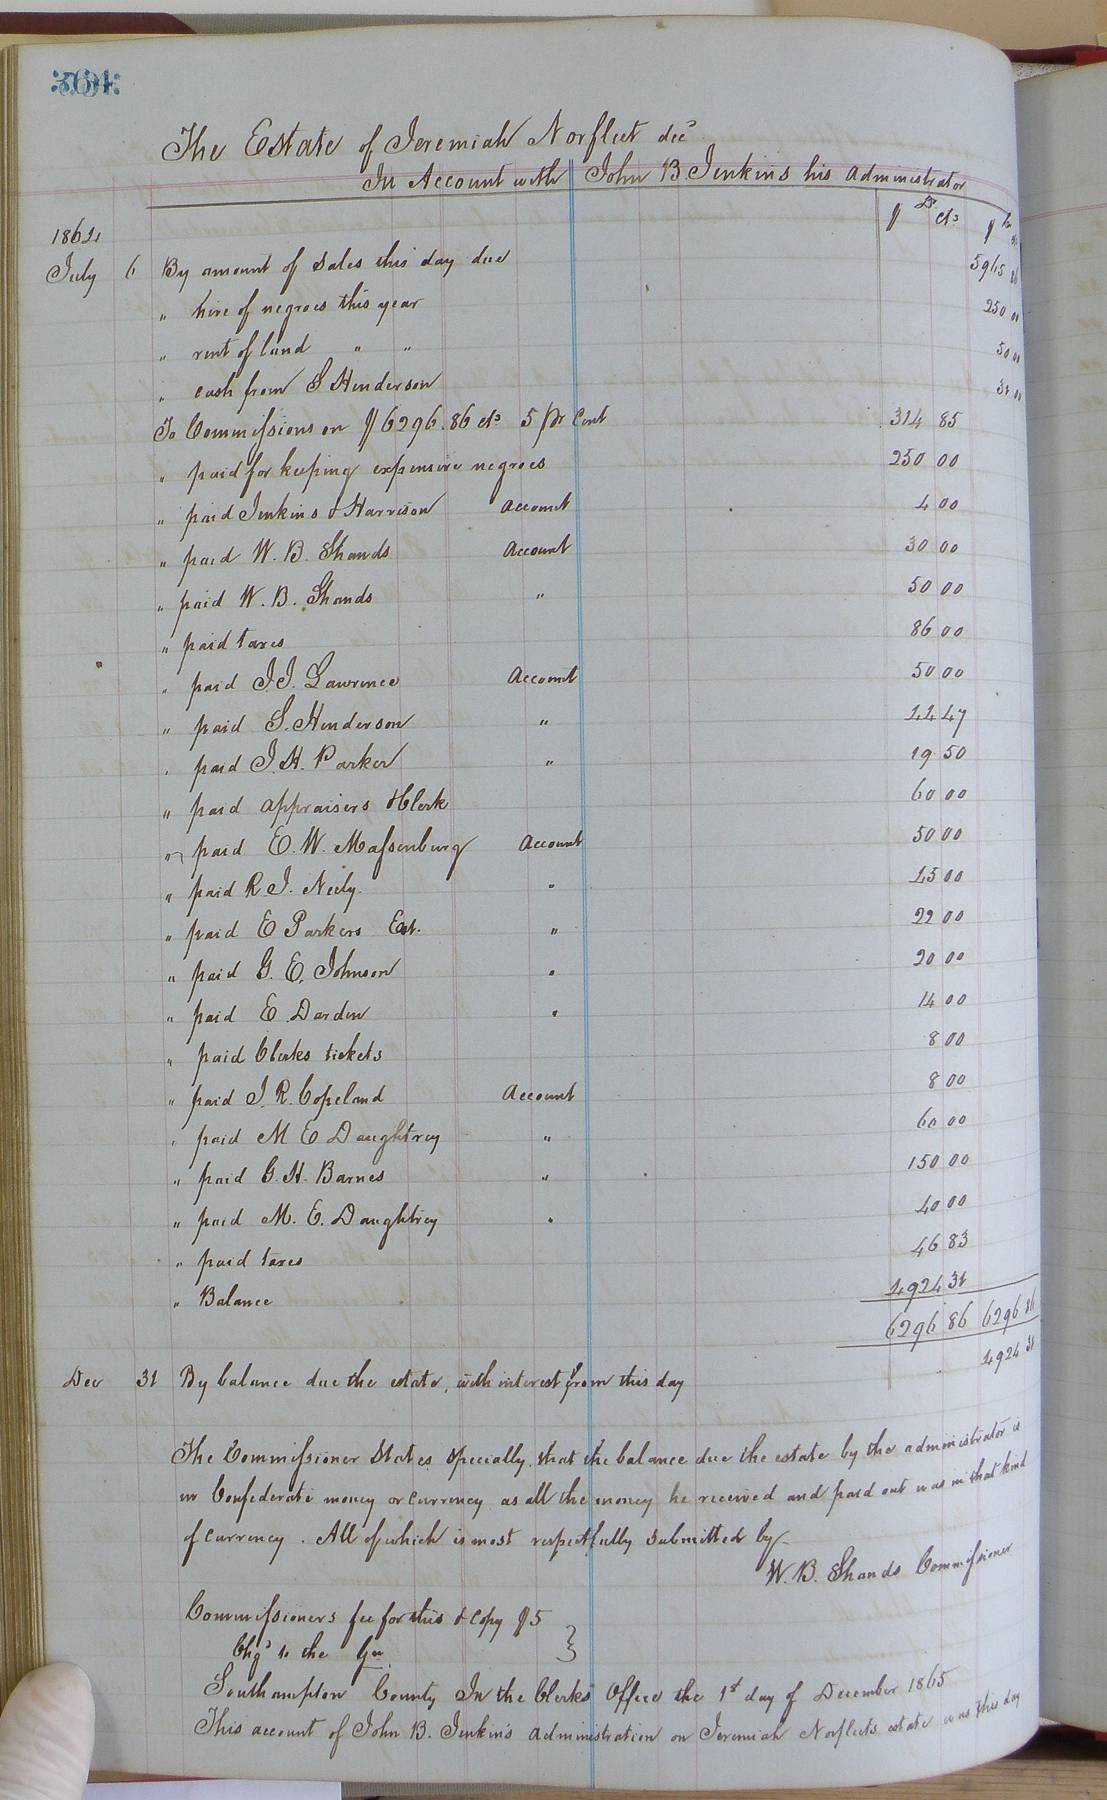 The Estate of Jeremiah Norfleet decd
In Account with John B Jenkins his administrator
Dr Cr
$ cts $ cts
1864
July 6 By amount of sales this day due 5965 86
" hire of negroes this year 250 00
" rent of land " " 50 00
" cash from S Henderson 31 00
To Commissions on $6296.86 cts 5 pr Cent 314 85
" paid for keeping expensive negroes 250 00
" paid Jenkins & Harrison Account 4 00
" paid W. B. Shands Account 30 00
" paid W. B. Shands " 50 00
" paid taxes 86 00
" paid J. J. Lawrence Account 50 00
" paid S. Henderson " 44 47
" paid J. H. Parker " 19 50
" paid appraisers & Clerk 60 00
" paid E. W. Massenburg Account 50 00
" paid R J. Neely. " 15 00
" paid E Parkers Est. " 22 00
" paid G. E. Johnson " 20 00
" paid E. Darden " 14 00
" paid Clerks tickets 8 00
" paid J. R. Copeland Account 8 00
" paid M E Daughtrey " 60 00
" paid G. H. Barnes " 150 00
" paid M. E. Daughtrey " 40 00
" paid taxes 46 83
" Balance 4924 31
6296 86 6296 86
4924 31
Dec 31 By balance due the estate, with interest from this day
The Commissioner States specially, that the balance due the estate by the administrator is
in Confederate money or currency as all the money he received and paid out was in that kind
of currency. All of which is most respectfully submitted by
W. B. Shands Commissioner
Commissioners fee for this & copy $5
Chgd to the
Southampton County In the Clerks Office the 1st day of December 1865
This account of John B. Jenkins administration on Jeremiah Norfleets estate was this day